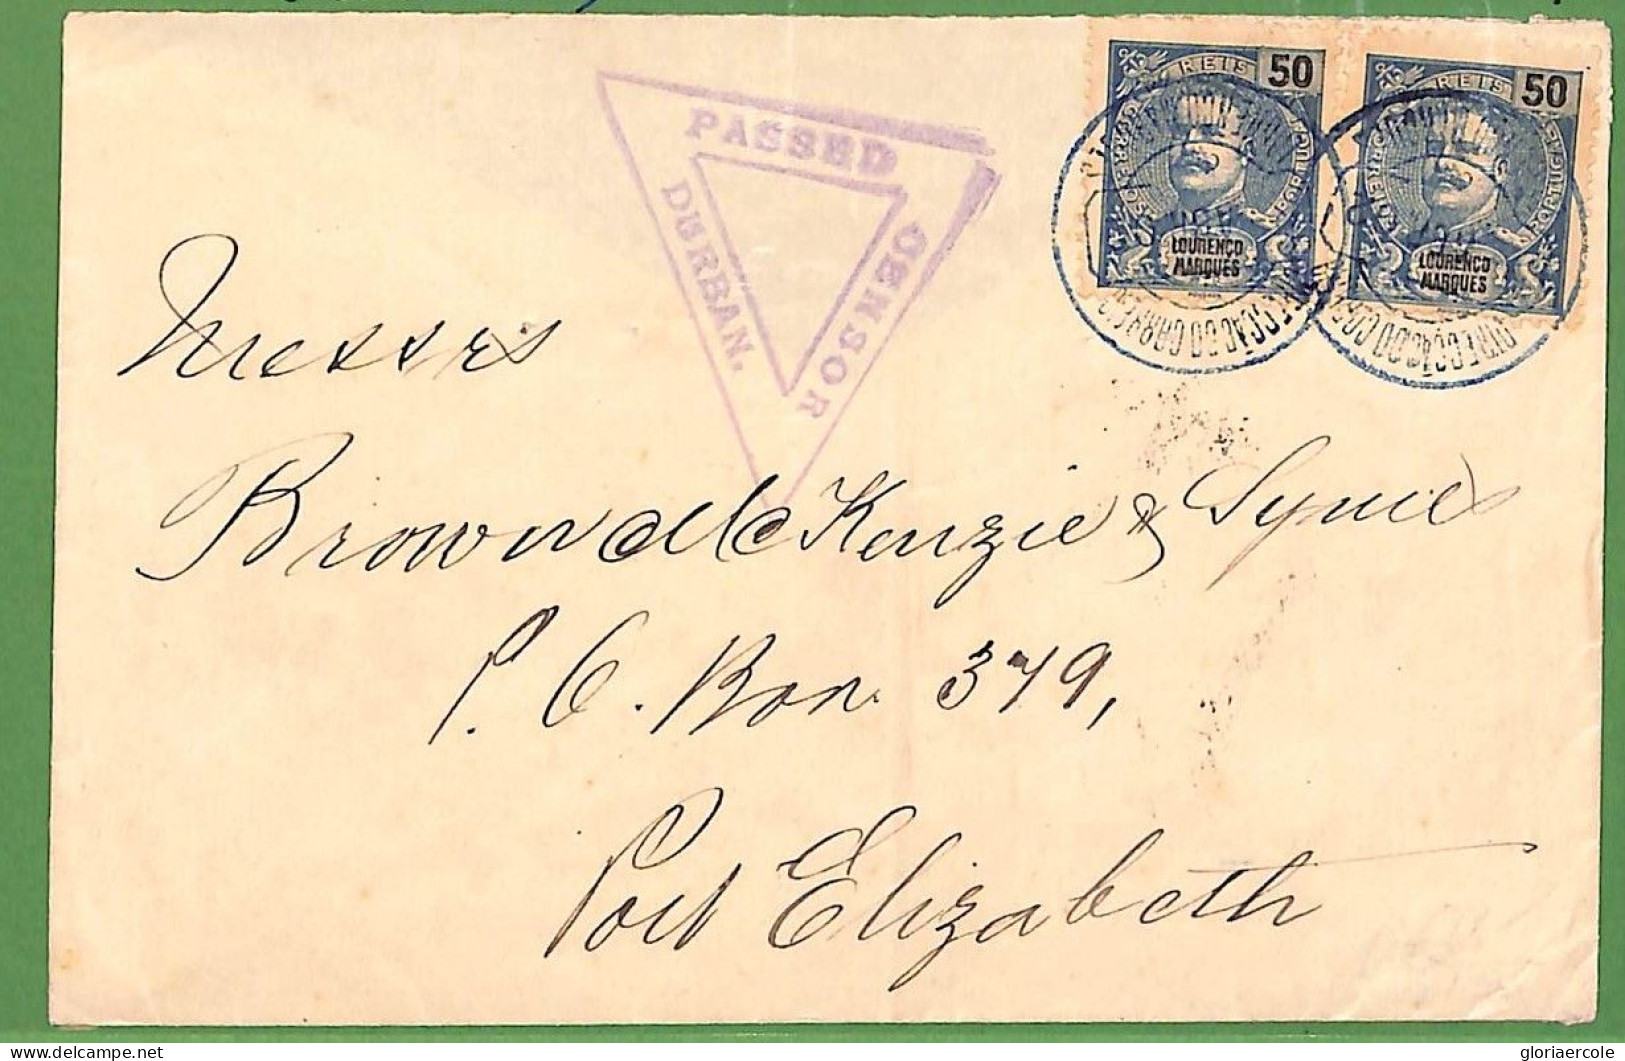 REIS 50
CORREIOS PORTUGAL
LOURENÇO
MARQUES
REIS 50
CORREIOS PORTUGAL
LOURENÇO
MARQUES
PASSED
CENSOR
DURBAN.
DIRECÇÃO DO CORREIO
DIRECÇÃO DO CORREIO
Messrs
Brown McKenzie & Syme
P.O. Box 379,
Port Elizabeth
delcampe.net
gloriaercole